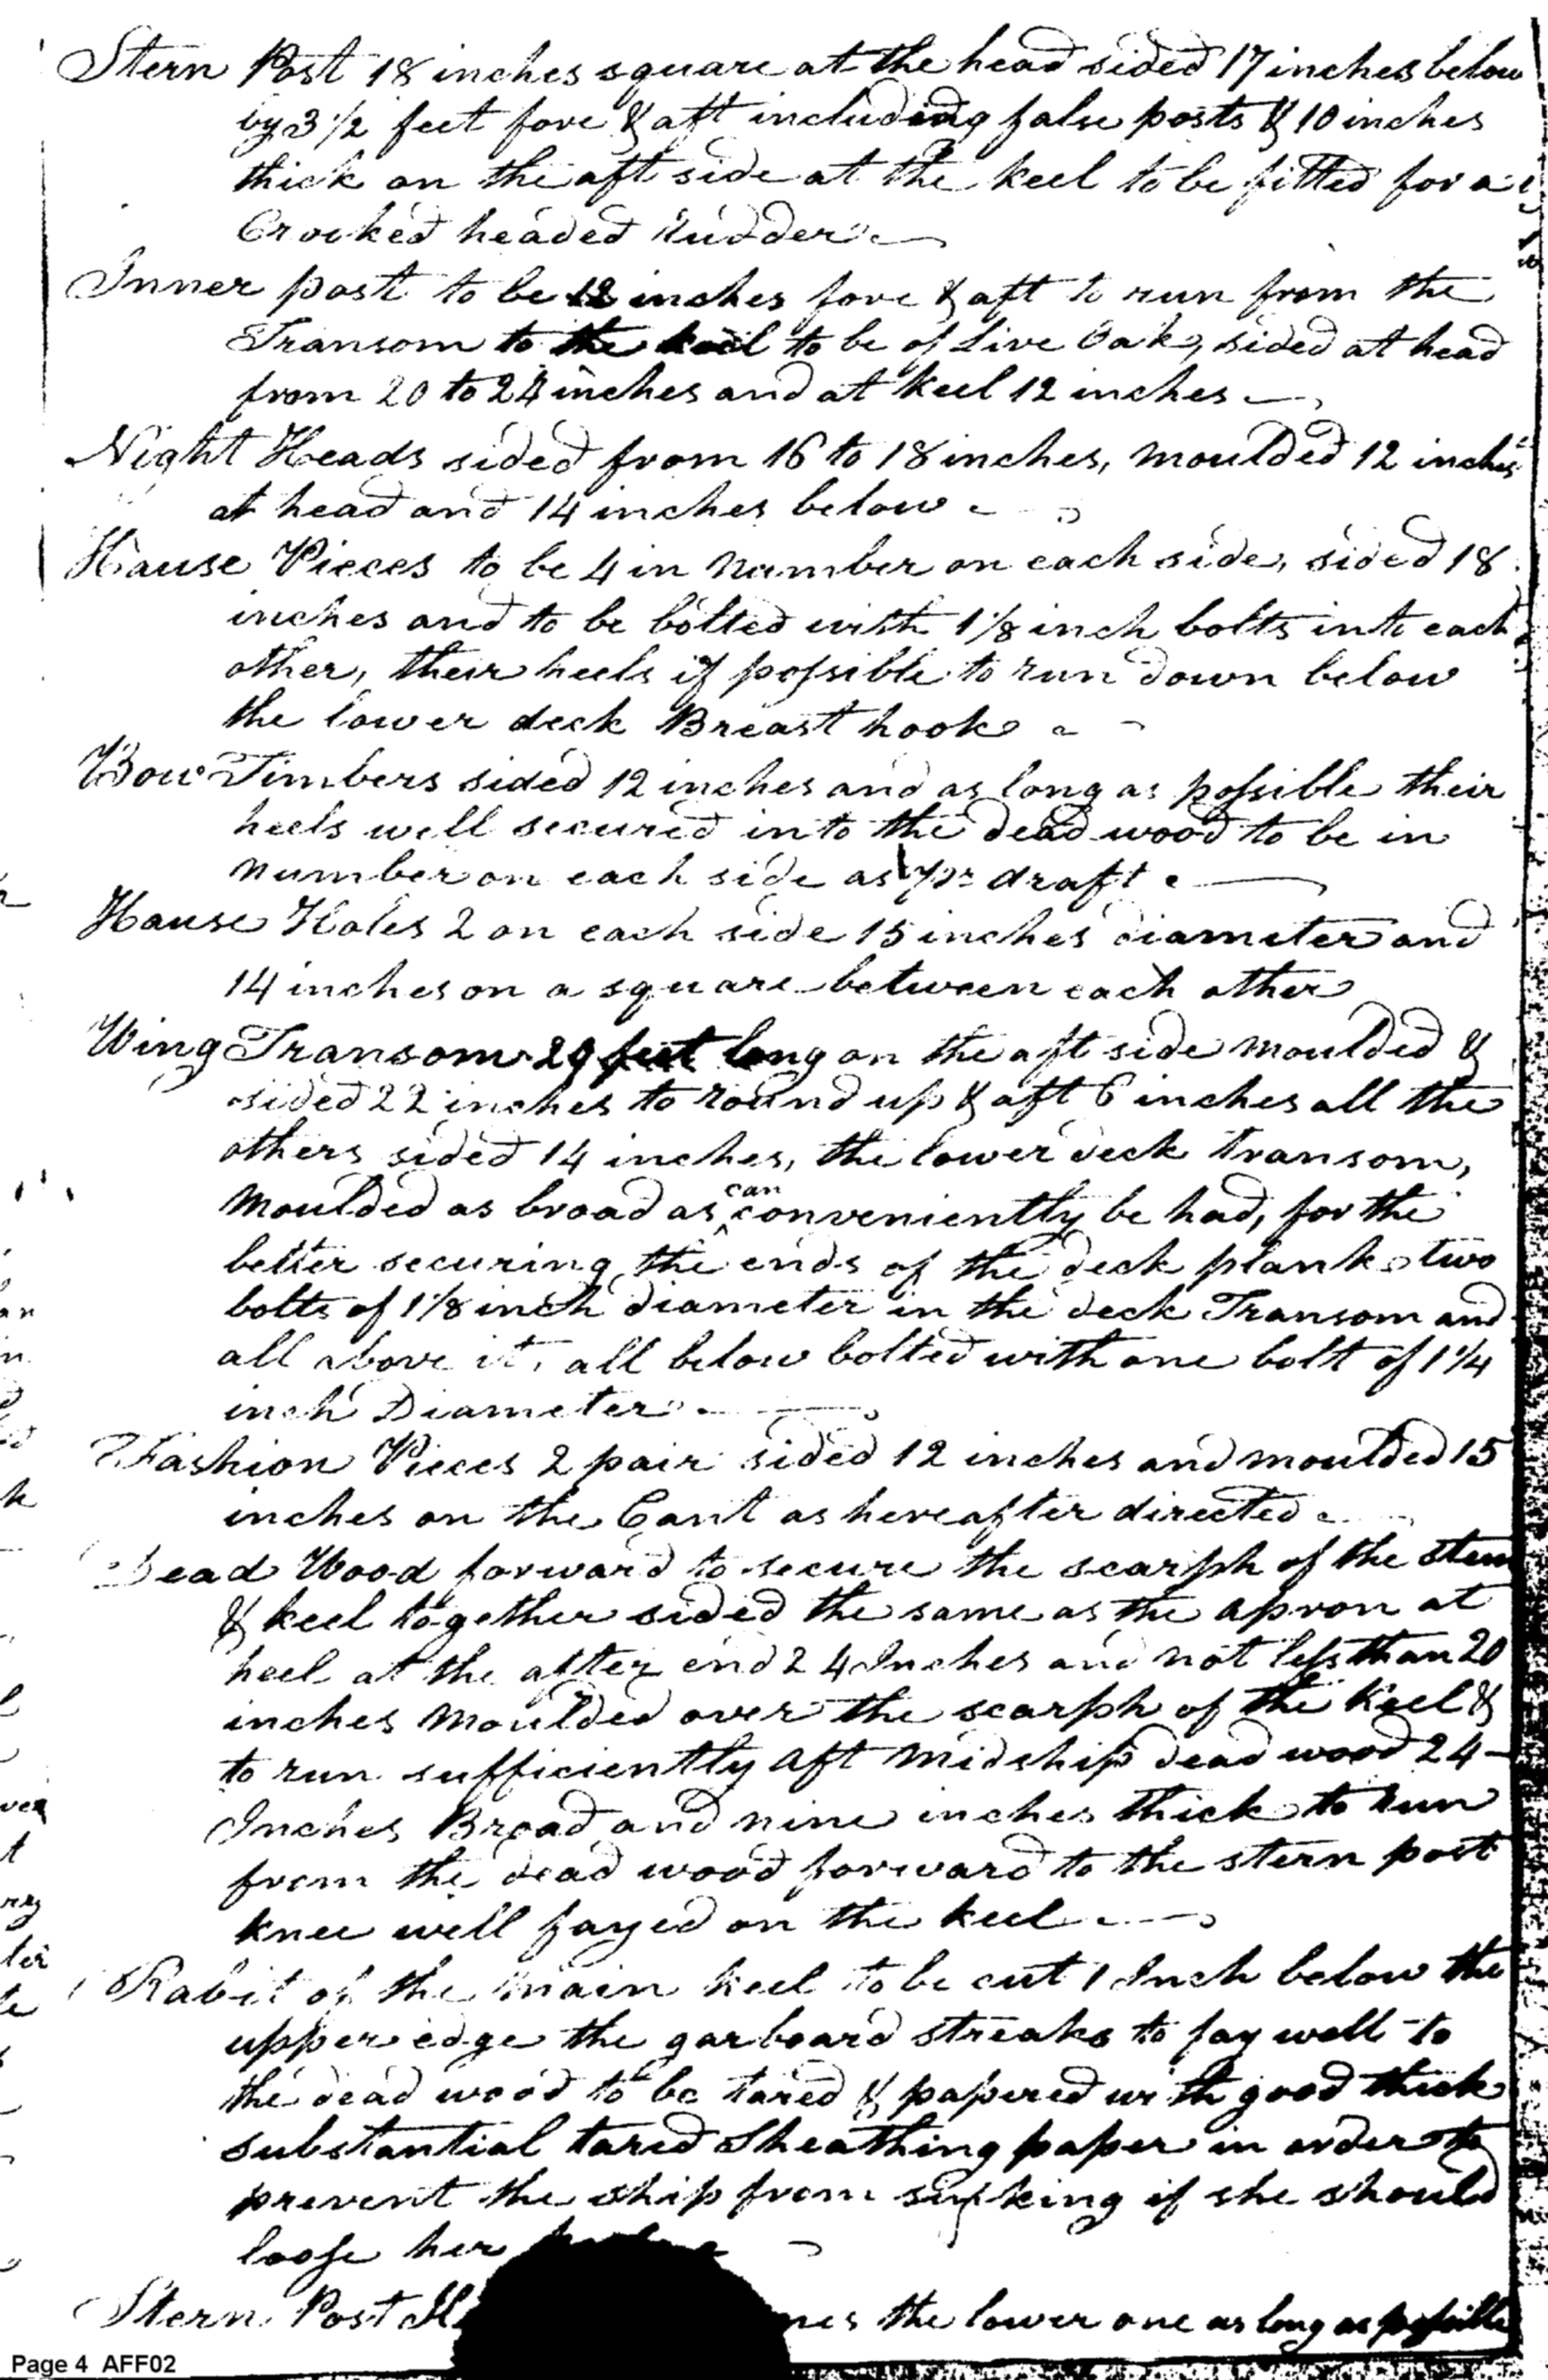 Stern Post 18 inches square at the head sided 17 inches below
by 3 1/2 feet fore & aft including false posts & 10 inches
thick on the aft side at the keel to be fitted for a
Crooked headed Rudder
Inner post to be 12 inches fore & aft to run from the
Transom to the keel to be of Live Oak, sided at head
from 20 to 24 inches and at keel 12 inches
Night Heads sided from 16 to 18 inches, moulded 12 inches
at head and 14 inches below
Hause Pieces to be 4 in number on each side, sided 18
inches and to be bolted with 1 1/8 inch bolts into each
other, their heels if possible to run down below
the lower deck Breast hook
Bow Timbers sided 12 inches and as long as possible their
heels well secured into the dead wood to be in
number on each side as pr draft
Hause Holes 2 on each side 15 inches diameter and
14 inches on a square between each other
Wing Transom 29 feet long on the aft side moulded &
sided 22 inches to round up & aft 6 inches all the
others sided 14 inches, the lower deck transom,
moulded as broad as can conveniently be had, for the
better securing the ends of the deck plank two
bolts of 1 1/8 inch diameter in the deck Transom and
all above it, all below bolted with one bolt of 1 1/4
inch Diameter
Fashion Pieces 2 pair sided 12 inches and moulded 15
inches on the Cant as hereafter directed
Dead Wood forward to secure the scarph of the stem
& keel together sided the same as the apron at
heel at the after end 24 Inches and not less than 20
inches moulded over the scarph of the Keel &
to run sufficiently aft midship dead wood 24
Inches Broad and nine inches thick to run
from the dead wood forward to the stern post
knee well fayed on the keel
Rabit of the main keel to be cut 1 Inch below the
upper edge the garboard streaks to fay well to
the dead wood to be tared & papered with good thick
substantial tared Sheathing paper in order to
prevent the ship from sinking if she should
loose her
Stern Post the lower one as long as possible
Page 4 AFF02